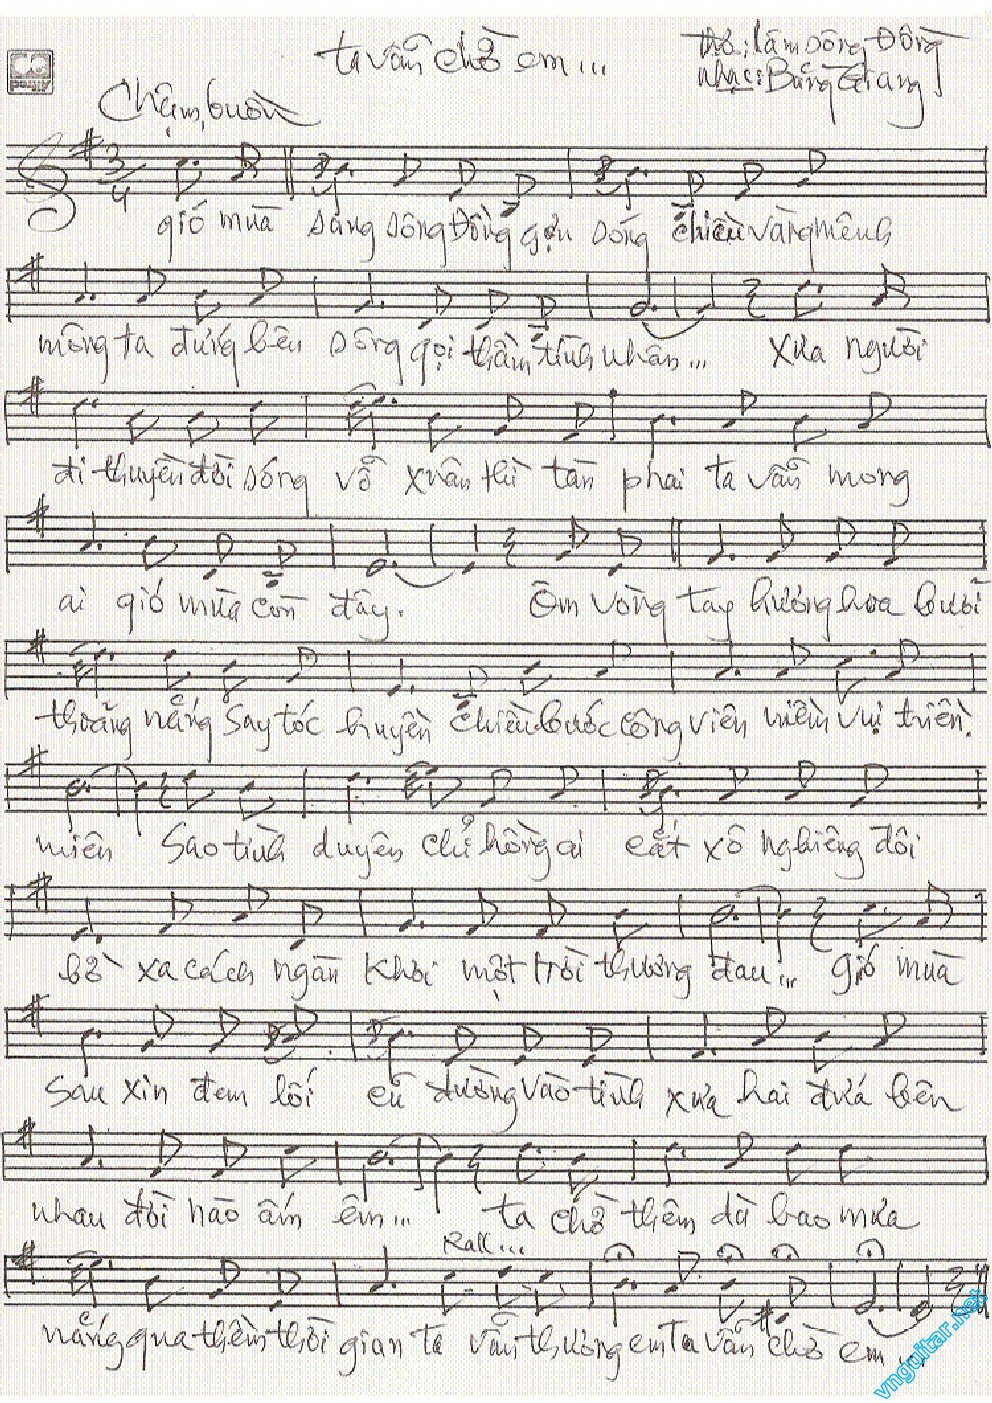 ta vẫn chờ em...
thơ: lâm sông Đồng
nhạc: Bằng Giang
Chậm, buồn
3
4
gió mùa sang sông Đồng gợn sóng chiều vàng mênh
mông ta đứng bên sông gọi thầm tình nhân... xưa người
đi thuyền đời sóng vỗ xuân thì tàn phai ta vẫn mong
ai gió mùa còn đây. Ôm vòng tay hương hoa bưởi
thoảng nắng say tóc huyền chiều bước công viên niềm vụi triền
miên Sao tình duyên chỉ hồng ai cắt xô nghiêng đôi
bờ xa cách ngàn khơi một trời thương đau... gió mùa
sau xin đem lối cũ đường vào tình xưa hai đứa bên
nhau đời nào ấm êm... ta chờ thêm dù bao mưa
Rall...
nắng qua thềm thời gian ta vẫn thương em ta vẫn chờ em...
vnguitar.net